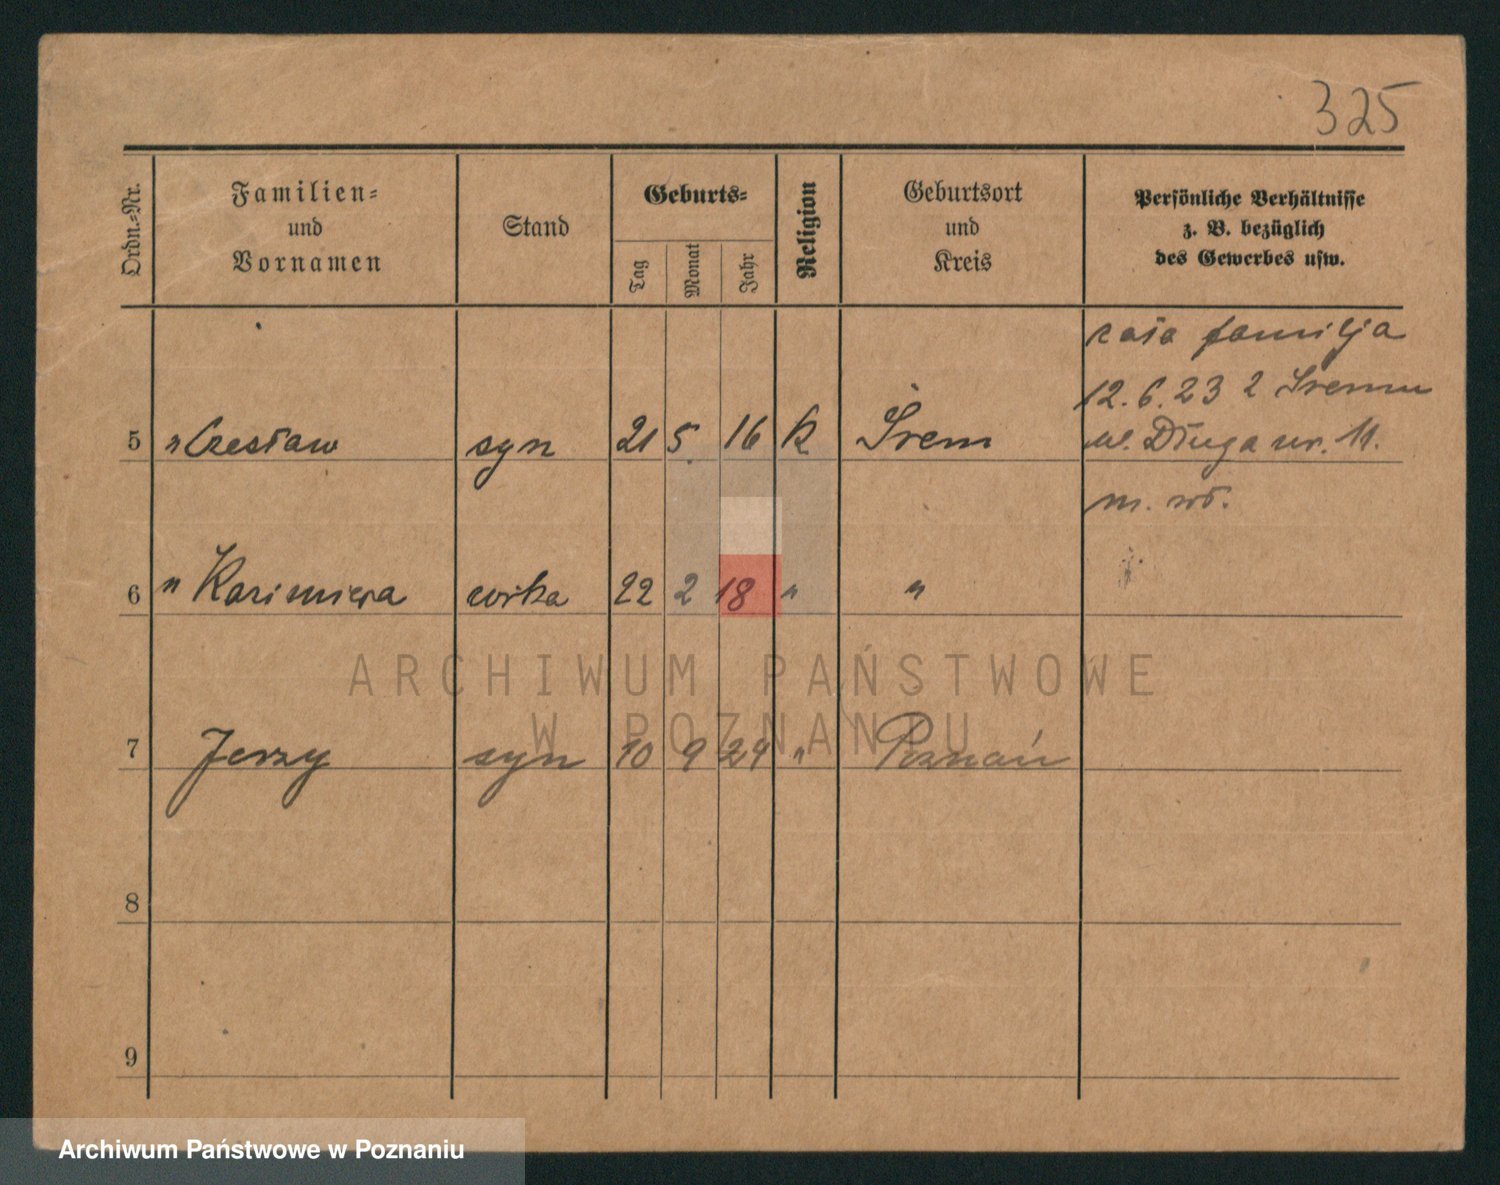 325
Ordn.-Nr.
Familien-
und
Vornamen
Stand
Geburts-
Tag
Monat
Jahr
Religion
Geburtsort
und
Kreis
Persönliche Verhältnisse
z. B. bezüglich
des Gewerbes usw.
cała familja
12.6.23 z Śremu
ul. Długa nr. 11.
5 " Czesław syn 21 5. 16 k Śrem
6 " Kazimiera córka 22 2 18 " "
7 Jerzy syn 10 9 24 " Poznań
8
9
ARCHIWUM PAŃSTWOWE
W POZNANIU
Archiwum Państwowe w Poznaniu